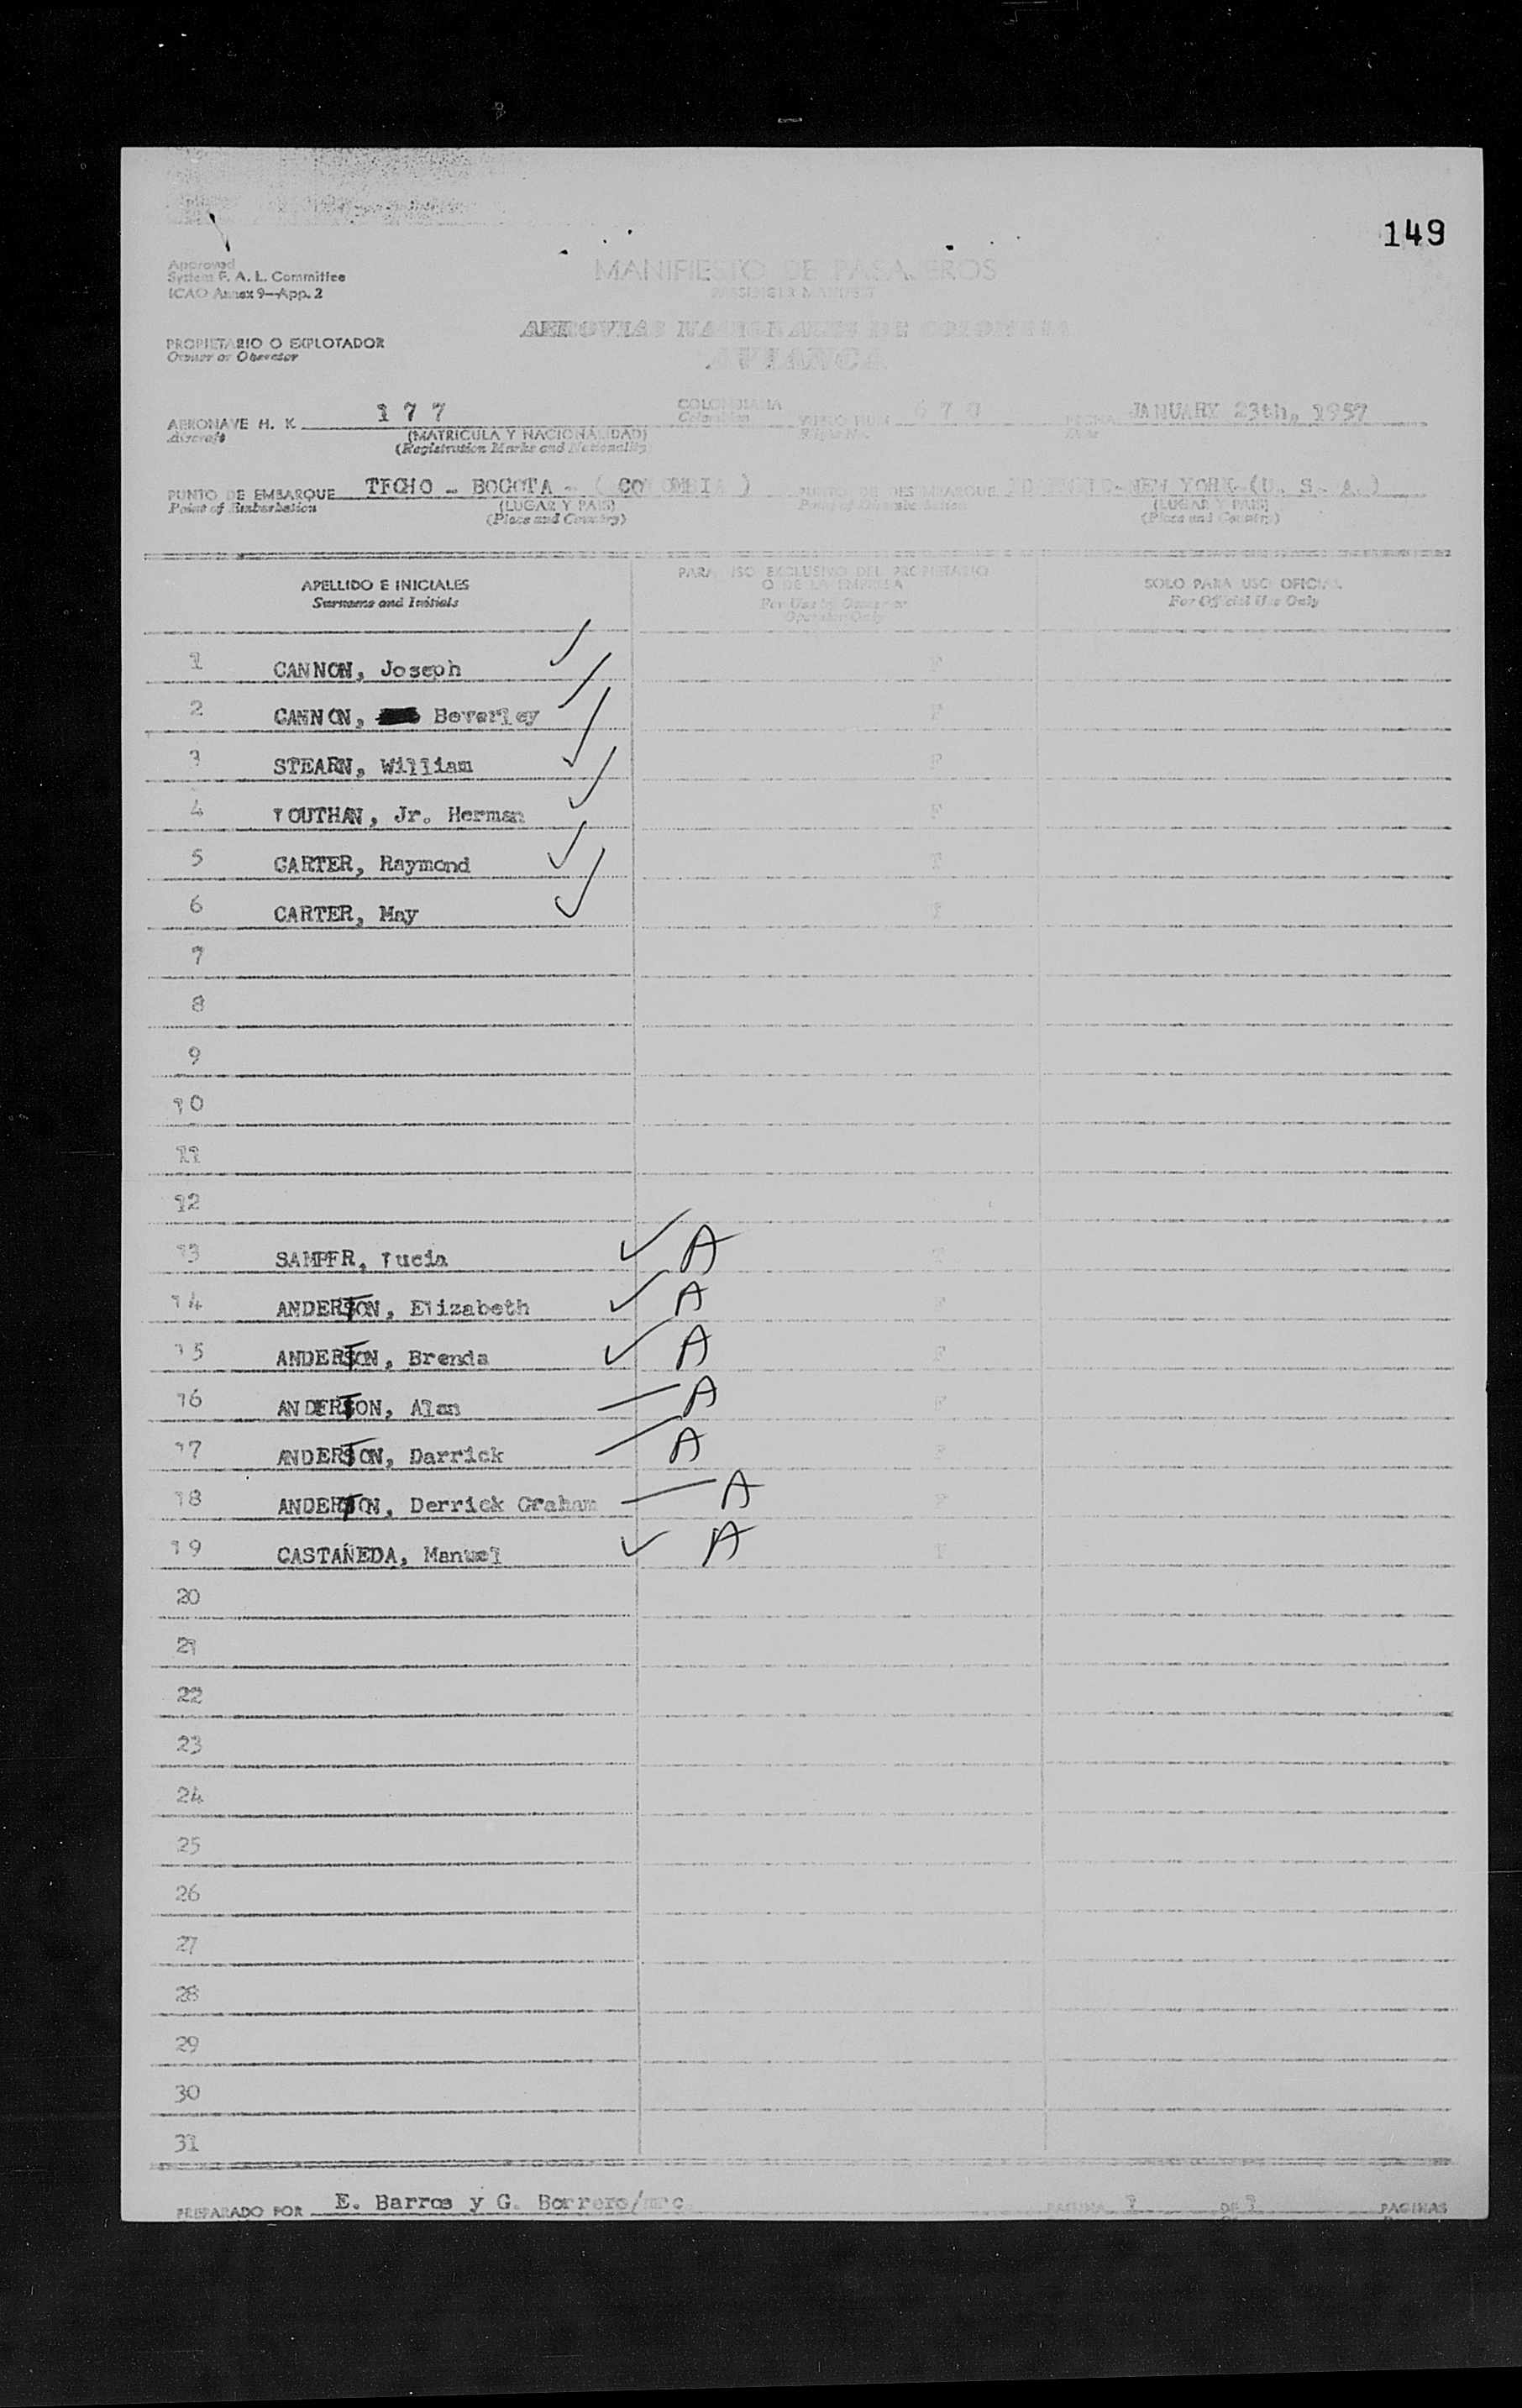 149
Approved
System F. A. L. Committee
ICAO Annex 9—App. 2
MANIFIESTO DE PASAJEROS
PASSENGER MANIFEST
PROPIETARIO O EXPLOTADOR
Owner or Operator
AEROVIAS NACIONALES DE COLOMBIA
AVIANCA
AERONAVE H. K. 177 COLOMBIANA VUELO NUM 670 FECHA JANUARY 23th, 1957
Aircraft (MATRICULA Y NACIONALIDAD) Colombian Flight No. Date
(Registration Marks and Nationality)
PUNTO DE EMBARQUE TECHO - BOGOTA - ( COLOMBIA ) PUNTO DE DESEMBARQUE IDLEWILD-NEW YORK-(U. S. A.)
Point of Embarkation (LUGAR Y PAIS) (LUGAR Y PAIS)
(Place and Country) (Place and Country)
APELLIDO E INICIALES PARA USO EXCLUSIVO DEL PROPIETARIO O DE LA EMPRESA SOLO PARA USO OFICIAL
Surname and Initials For Use by Owner or Operator Only For Official Use Only
1 CANNON, Joseph F
2 CANNON, Beverley F
3 STEARN, William F
4 LOUTHAN, Jr. Herman F
5 CARTER, Raymond F
6 CARTER, May F
7
8
9
10
11
12
13 SAMPER, Lucia A F
14 ANDERTON, Elizabeth A F
15 ANDERTON, Brenda A F
16 ANDERTON, Alan A F
17 ANDERTON, Darrick A F
18 ANDERTON, Derrick Graham A F
19 CASTAÑEDA, Manuel A F
20
21
22
23
24
25
26
27
28
29
30
31
PREPARADO POR E. Barros y G. Borrero/mrc PAGINA 1 DE 1 PAGINAS